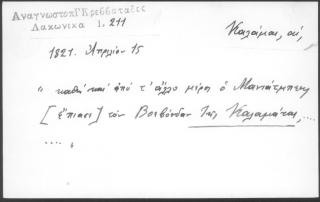 Αναγνωστοπ Γκρεββατάδες
Λακωνικά 1, 211
Καλάμαι, αἱ,
1821. Ἀπριλίου 15
" καθὼ καὶ ἀπὸ τ' ἄλλο μέρος ὁ Μανιάτμπεης
[ἔπιασε] τὸν Βοεβόνδαν τῆς Καλαμάτας, ....
.... ,